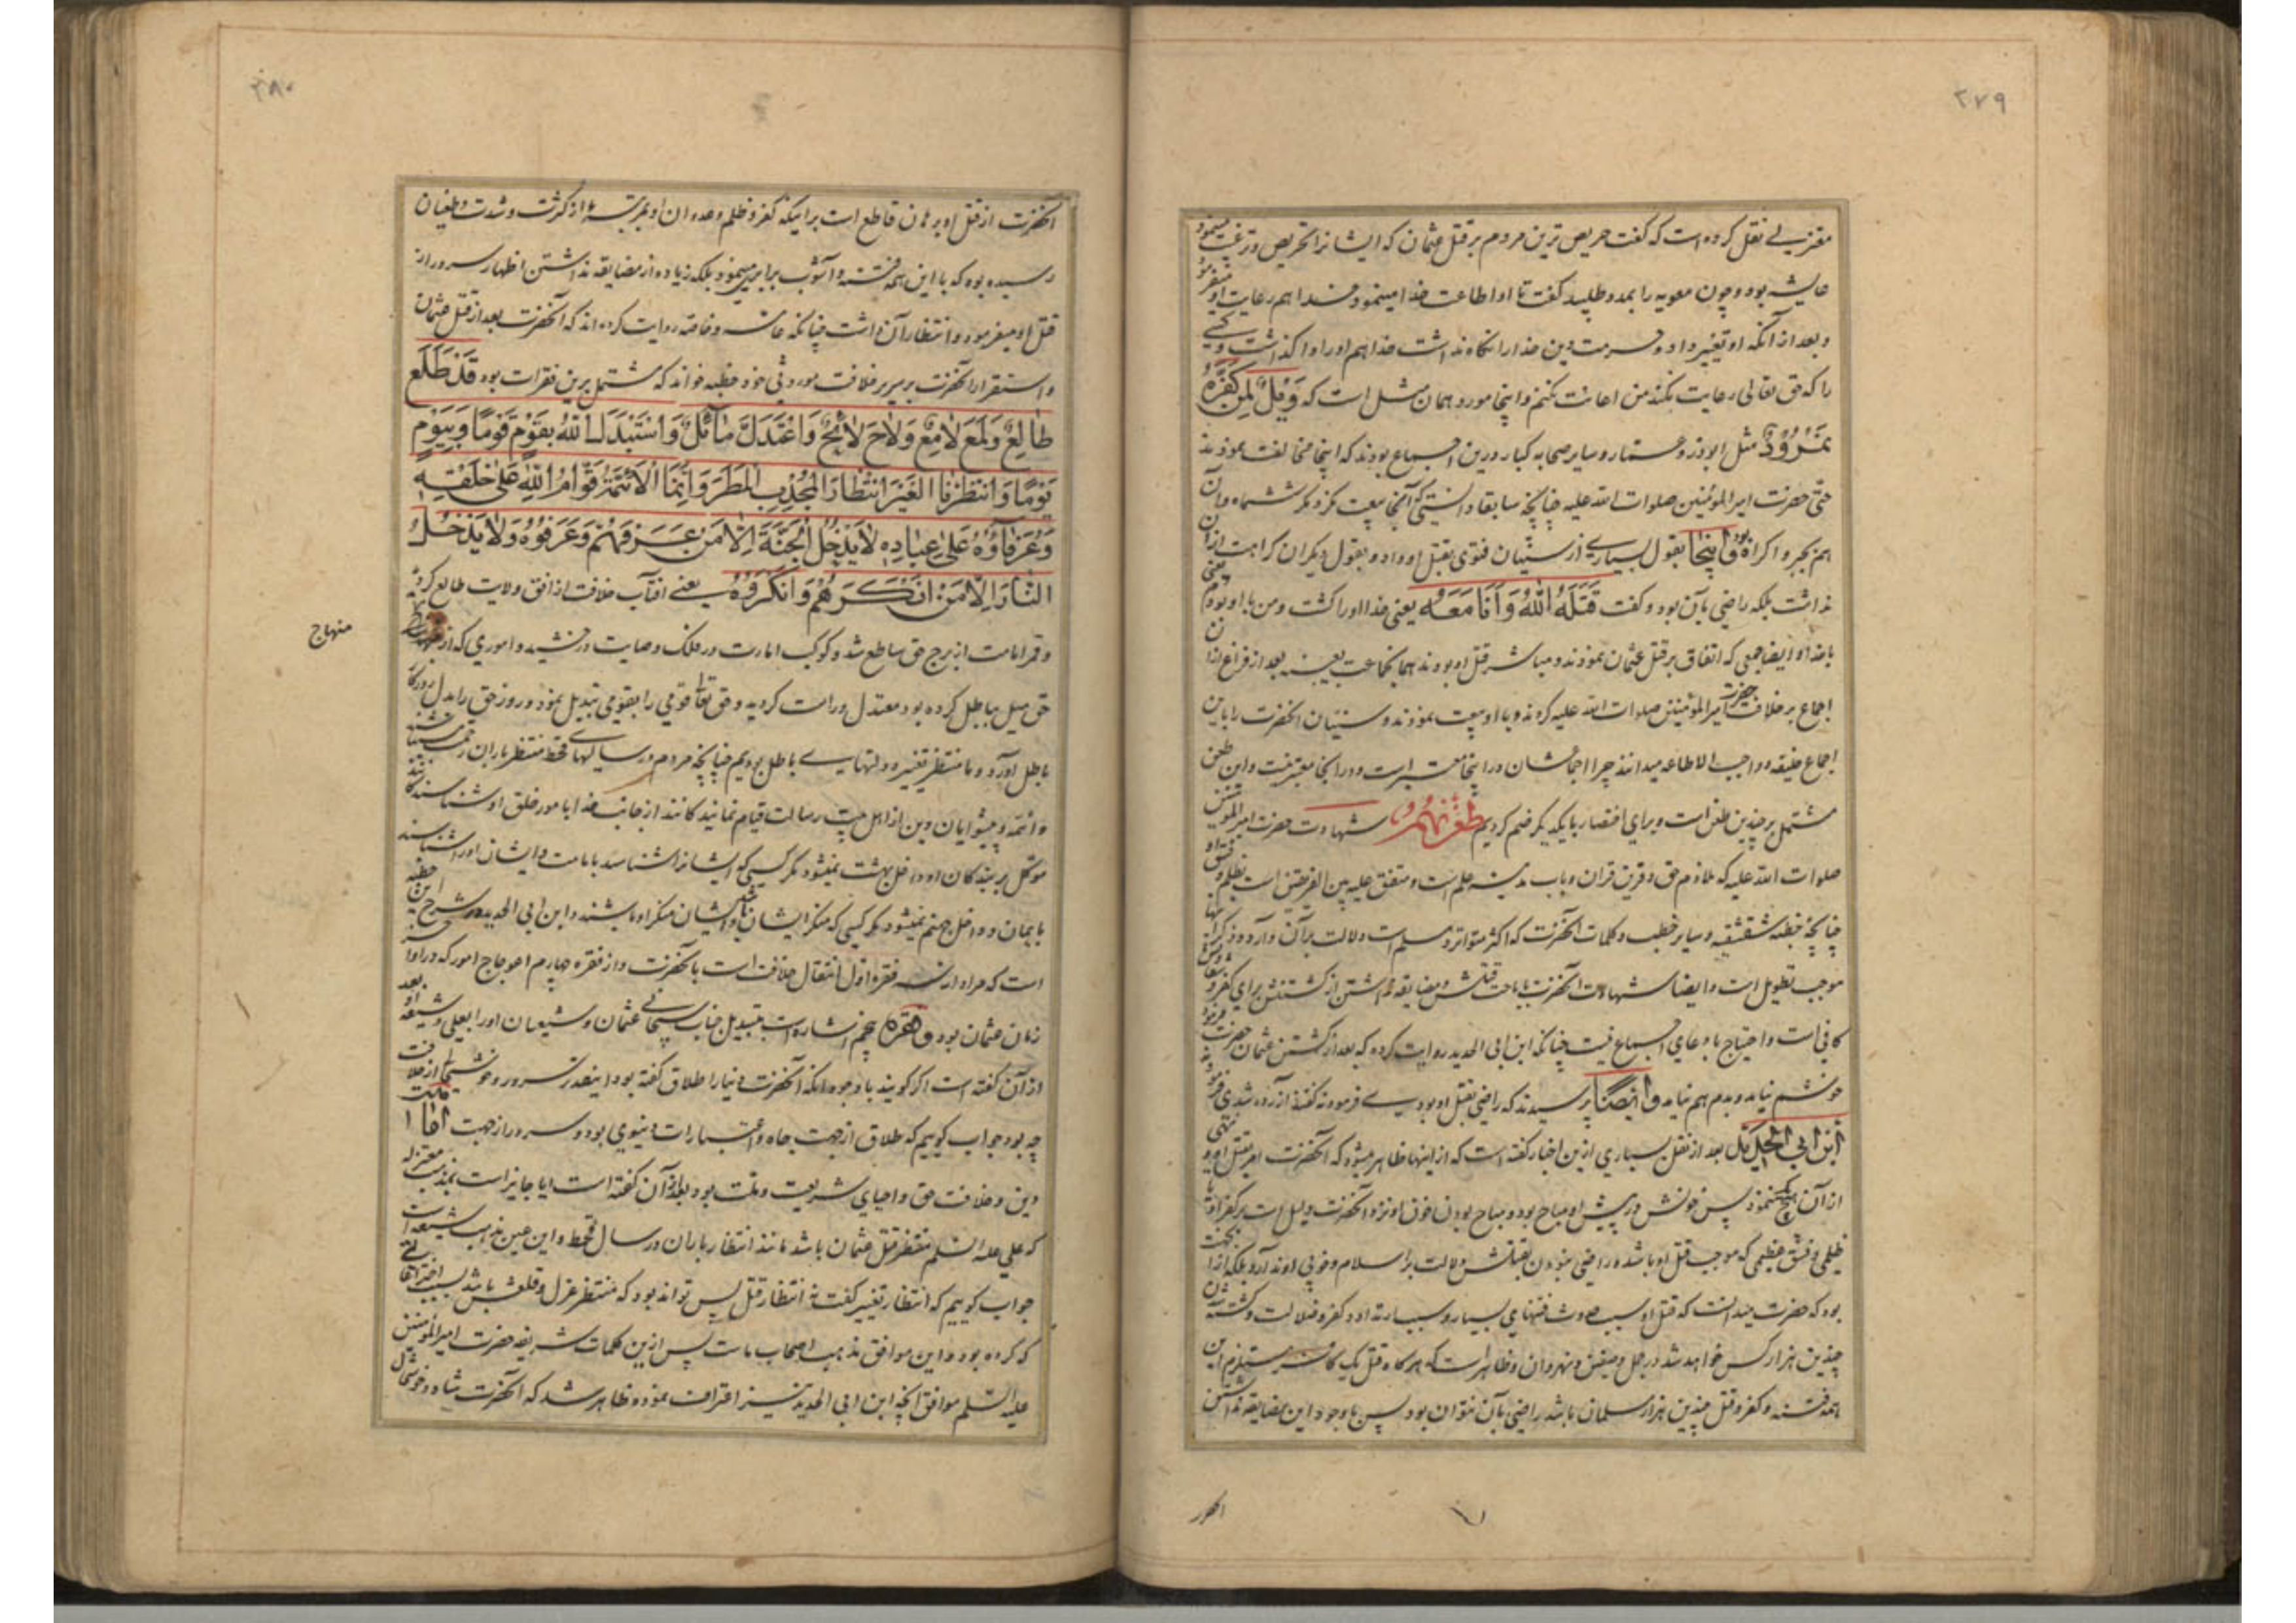 ۲۷۹
معتزلی نقل کرده است که گفت حریص ترین مردم بر قتل عثمان که ایشانرا تحریص و ترغیب مینمود
عایشه بود و چون معویه را بمدد طلبید گفت تا او اطاعت خدا مینمود خدا هم رعایت او میفرمود
و بعد از آنکه او تغییر داد و حرمت دین خدا را نگاه نداشت خدا هم او را واگذاشت و کسی
را که حق تعالی رعایت نکند من اعانت نکنم و اینجا مورد همان مثل است که وَیْلٌ لِمَنْ کَفَّرَهُ
نَمْرُوُدُ مثل ابوذر و عمار و سایر صحابه کبار درین اجماع بودند که اینجا مخالفت نمودند
حتی حضرت امیرالمؤمنین صلوات الله علیه چنانچه سابقا دانستی که آنجا بیعت نکرد مگر ششماه و آن
هم بجبر و اکراه بود و اینجا بقول بسیاری از سنیان فتوی بقتل او داد و بقول دیگران کراهت از آن
نداشت بلکه راضی بآن بود و گفت قَتَلَهُ اللهُ وَاَنَا مَعَهُ یعنی خدا او را کشت و من با او بودم یعنی
با خدا و ایضا جمعی که اتفاق بر قتل عثمان نمودند و مباشر قتل او بودند همان جماعت بعینه بعد از فراغ از آن
اجماع بر خلافت حضرت امیرالمؤمنین صلوات الله علیه کردند و با او بیعت نمودند و سنیان آنحضرت را باین
اجماع خلیفه و واجب الاطاعه میدانند چرا اجماعشان در اینجا معتبر است و در آنجا معتبر نیست و این طعن
مشتمل بر چندین طعن است و برای اختصار با یکدیگر ضم کردیم طعن نهم شهادت حضرت امیرالمؤمنین
صلوات الله علیه که ملازم حق و قرین قران و باب مدینه علم است و متفق علیه بین الفریقین است بظلم و فسق او
چنانچه خطبه شقشقیه و سایر خطب و کلمات آنحضرت که اکثر متواتر و مسلم است دلالت بر آن دارد و ذکر آنها
موجب تطویل است و ایضا شهادت آنحضرت باباحت قتلش و مضایقه نداشتن از کشتنش برای کفر و شقاوتش
کافی است و احتیاج بادعای اجماع نیست چنانکه ابن ابی الحدید روایت کرده که بعد از کشتن عثمان حضرت فرمود
خوشم نیاید و بدم هم نیاید و ایضًا پرسیدند که راضی بقتل او بودی فرمود نه گفتند آزرده شدی فرمود نه
اِبن اَبی الْحَدید بعد از نقل بسیاری ازین اخبار گفته است که از اینها ظاهر میشود که آنحضرت امر بقتل او و نهی
از آن هیچیک ننمود پس خونش در پیش او مباح بود و مباح بودن خون او نزد آنحضرت دلیل است بر کفر او یا
ظلمی و فسق عظیمی که موجب قتل او باشد و راضی نبودن بقتلش دلالت بر اسلام و خوبی او ندارد بلکه از آن جهت
بود که حضرت میدانست که قتل او سبب حدوث فتنهای بسیار و سبب ارتداد و کفر و ضلالت و کشته شدن
چندین هزار کس خواهد شد در جمل و صفین و نهروان و ظاهر است که هر گاه قتل یک کافر مستلزم این
همه فتنه و کفر و قتل چندین هزار مسلمان باشد راضی بآن نتوان بود پس با وجود این مضایقه نداشتن
۲۸۰
آنحضرت از قتل او برهان قاطع است بر اینکه کفر و ظلم و عدوان او بمرتبهٔ از کثرت و شدت و طغیان
رسیده بوده که با این همه فتنه و آشوب برابری مینمود بلکه زیاده از مضایقه نداشتن اظهار سرور از
قتل او میفرمود و انتظار آن داشت چنانکه عامه و خاصه روایت کرده‌اند که آنحضرت بعد از قتل عثمان
و استقرار آنحضرت بر سریر خلافت موروثی خود خطبه خواند که مشتمل برین فقرات بود قَدْ طَلَعَ
طٰالِعٌ وَلَمَعَ لٰامِعٌ وَلٰاحَ لٰائِحٌ وَاعْتَدَلَ مٰائِلٌ وَاسْتَبْدَلَ اللهُ بِقَوْمٍ قَوْمًا وَبِیَوْمٍ
یَوْمًا وَانْتَظَرْنَا الْغِیَرَ انْتِظٰارَ الْمُجْدِبِ الْمَطَرَ وَاِنَّمَا الْاَئِمَّةُ قُوّٰامُ اللهِ عَلیٰ خَلْقِهِ
وَعُرَفٰاؤُهُ عَلیٰ عِبٰادِهِ لٰا یَدْخُلُ الْجَنَّةَ اِلّٰا مَنْ عَرَفَهُمْ وَعَرَفُوُهُ وَلٰا یَدْخُلُ
النّٰارَ اِلّٰا مَنْ اَنْکَرَهُمْ وَاَنْکَرُوُهُ یعنی افتاب خلافت از افق ولایت طالع گردید
و قمر امامت از برج حق ساطع شد و کوکب امارت در فلک وصایت درخشید و اموری که از
منهاج
حق میل بباطل کرده بود معتدل و راست گردید و حق تعالی قومی را بقومی تبدیل نمود و روز حق را بدل روزگار
باطل آورد و ما منتظر تغییر دولتهای باطل بودیم چنانچه مردم در سالهای قحط منتظر باران رحمت میباشند
و ائمه و پیشوایان دین از اهل بیت رسالت قیام نمایندکانند از جانب خدا بامور خلق او و شناسندکانند
موکل بر بندکان او داخل بهشت نمیشود مگر کسی که ایشانرا شناسد بامامت و ایشان او را شناسند
بایمان و داخل جهنم نمیشود مگر کسی که منکر ایشان باشد و ایشان منکر او باشند و ابن ابی الحدید در شرح این خطبه
است که مراد از سه فقره اول انتقال خلافت است بآنحضرت و از فقره چهارم اعوجاج امور که در اواخر
زمان عثمان بود و فقره پنجم اشاره است بتبدیل جناب سبحانی عثمان و شیعیان او را بعلی و شیعه او بعد
از آن گفته است اگر گویند با وجود انکه آنحضرت دنیا را طلاق گفته بود اینقدر سرور و خوشحالی از خلافت
چه بود جواب گوییم که طلاق از جهت جاه و اعتبارات دنیوی بود و سرور از جهت اقامت
دین و خلافت حق و احیای شریعت و ملت بود بعد از آن گفته است ایا جایز است بمذهب معتزله
که علی علیه السلم منتظر قتل عثمان باشد مانند انتظار باران در سال قحط و این عین مذهب شیعه است
جواب گوییم که انتظار تغییر گفت نه انتظار قتل پس تواند بود که منتظر عزل و خلعش باشد بسبب احداثی
که کرده بود و این موافق مذهب اصحاب ماست پس ازین کلمات شریفه حضرت امیرالمؤمنین
علیه السلم موافق آنچه ابن ابی الحدید نیز اعتراف نموده ظاهر شد که آنحضرت شاد و خوشحال